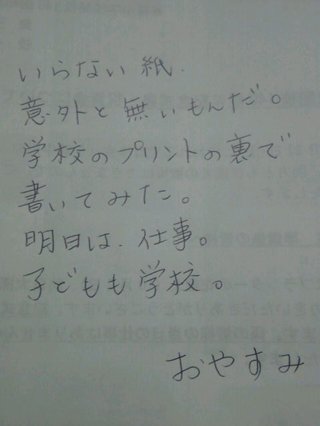 いらない紙.
意外と無いもんだ。
学校のプリントの裏で
書いてみた。
明日は.仕事。
子どもも学校。
おやすみ